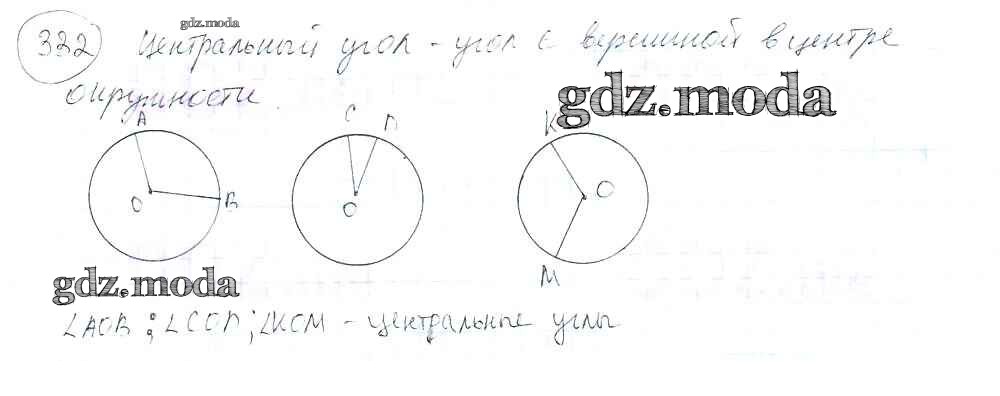 gdz.moda
322 Центральный угол - угол с вершиной в центре
окружности.
gdz.moda
A
B
O
C
D
O
K
O
M
gdz.moda
∠AOB; ∠COD; ∠KOM - центральные углы